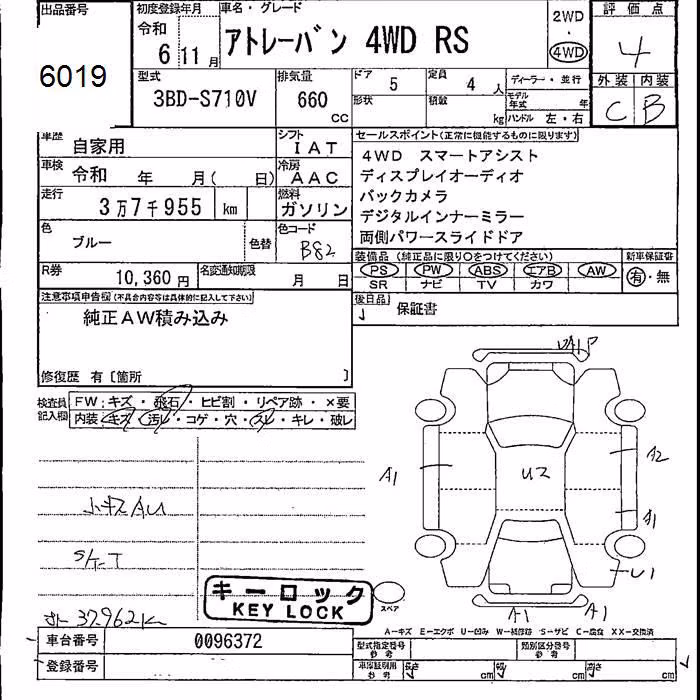 出品番号
6019
初度登録年月
令和
6 11月
車名・グレード
アトレーバン 4WD RS
2WD
・
4WD
評価点
4
型式
3BD-S710V
排気量
660
CC
ドア
5
定員
4人
ディーラー・並行
形状
積数
kg
モデル年式 年
ハンドル 左・右
外装 内装
C B
車歴
自家用
シフト
IAT
車検
令和 年 月( 日)
冷房
AAC
走行
3万7千955 km
燃料
ガソリン
色
ブルー
色替
色コード
B82
R券
10,360円
名変通知期限
月 日
セールスポイント(正常に機能するものに限ります)
4WD スマートアシスト
ディスプレイオーディオ
バックカメラ
デジタルインナーミラー
両側パワースライドドア
装備品 (純正品に限り○をつけてください)
新車保証書
PS PW ABS エアB AW
SR ナビ TV カワ
有・無
後日品
保証書
注意事項申告欄(不具合内容等は具体的に記入して下さい)
純正AW積み込み
修復歴 有〔箇所 〕
検査員
記入欄
FW:キズ・飛石・ヒビ割・リペア跡・×要
内装・キズ・汚レ・コゲ・穴・スレ・キレ・破レ
小キズAU
S/T-T
37962k
キーロック
KEY LOCK
スペア
A1
A2
A1
U1
A1
A1
A-キズ E-エクボ U-凹み W-補修跡 S-サビ C-腐食 XX-交換済
車台番号
0096372
登録番号
型式指定番号
参考
類別区分番号
参考
車庫証明用
参考
長さ cm
幅 cm
高さ cm